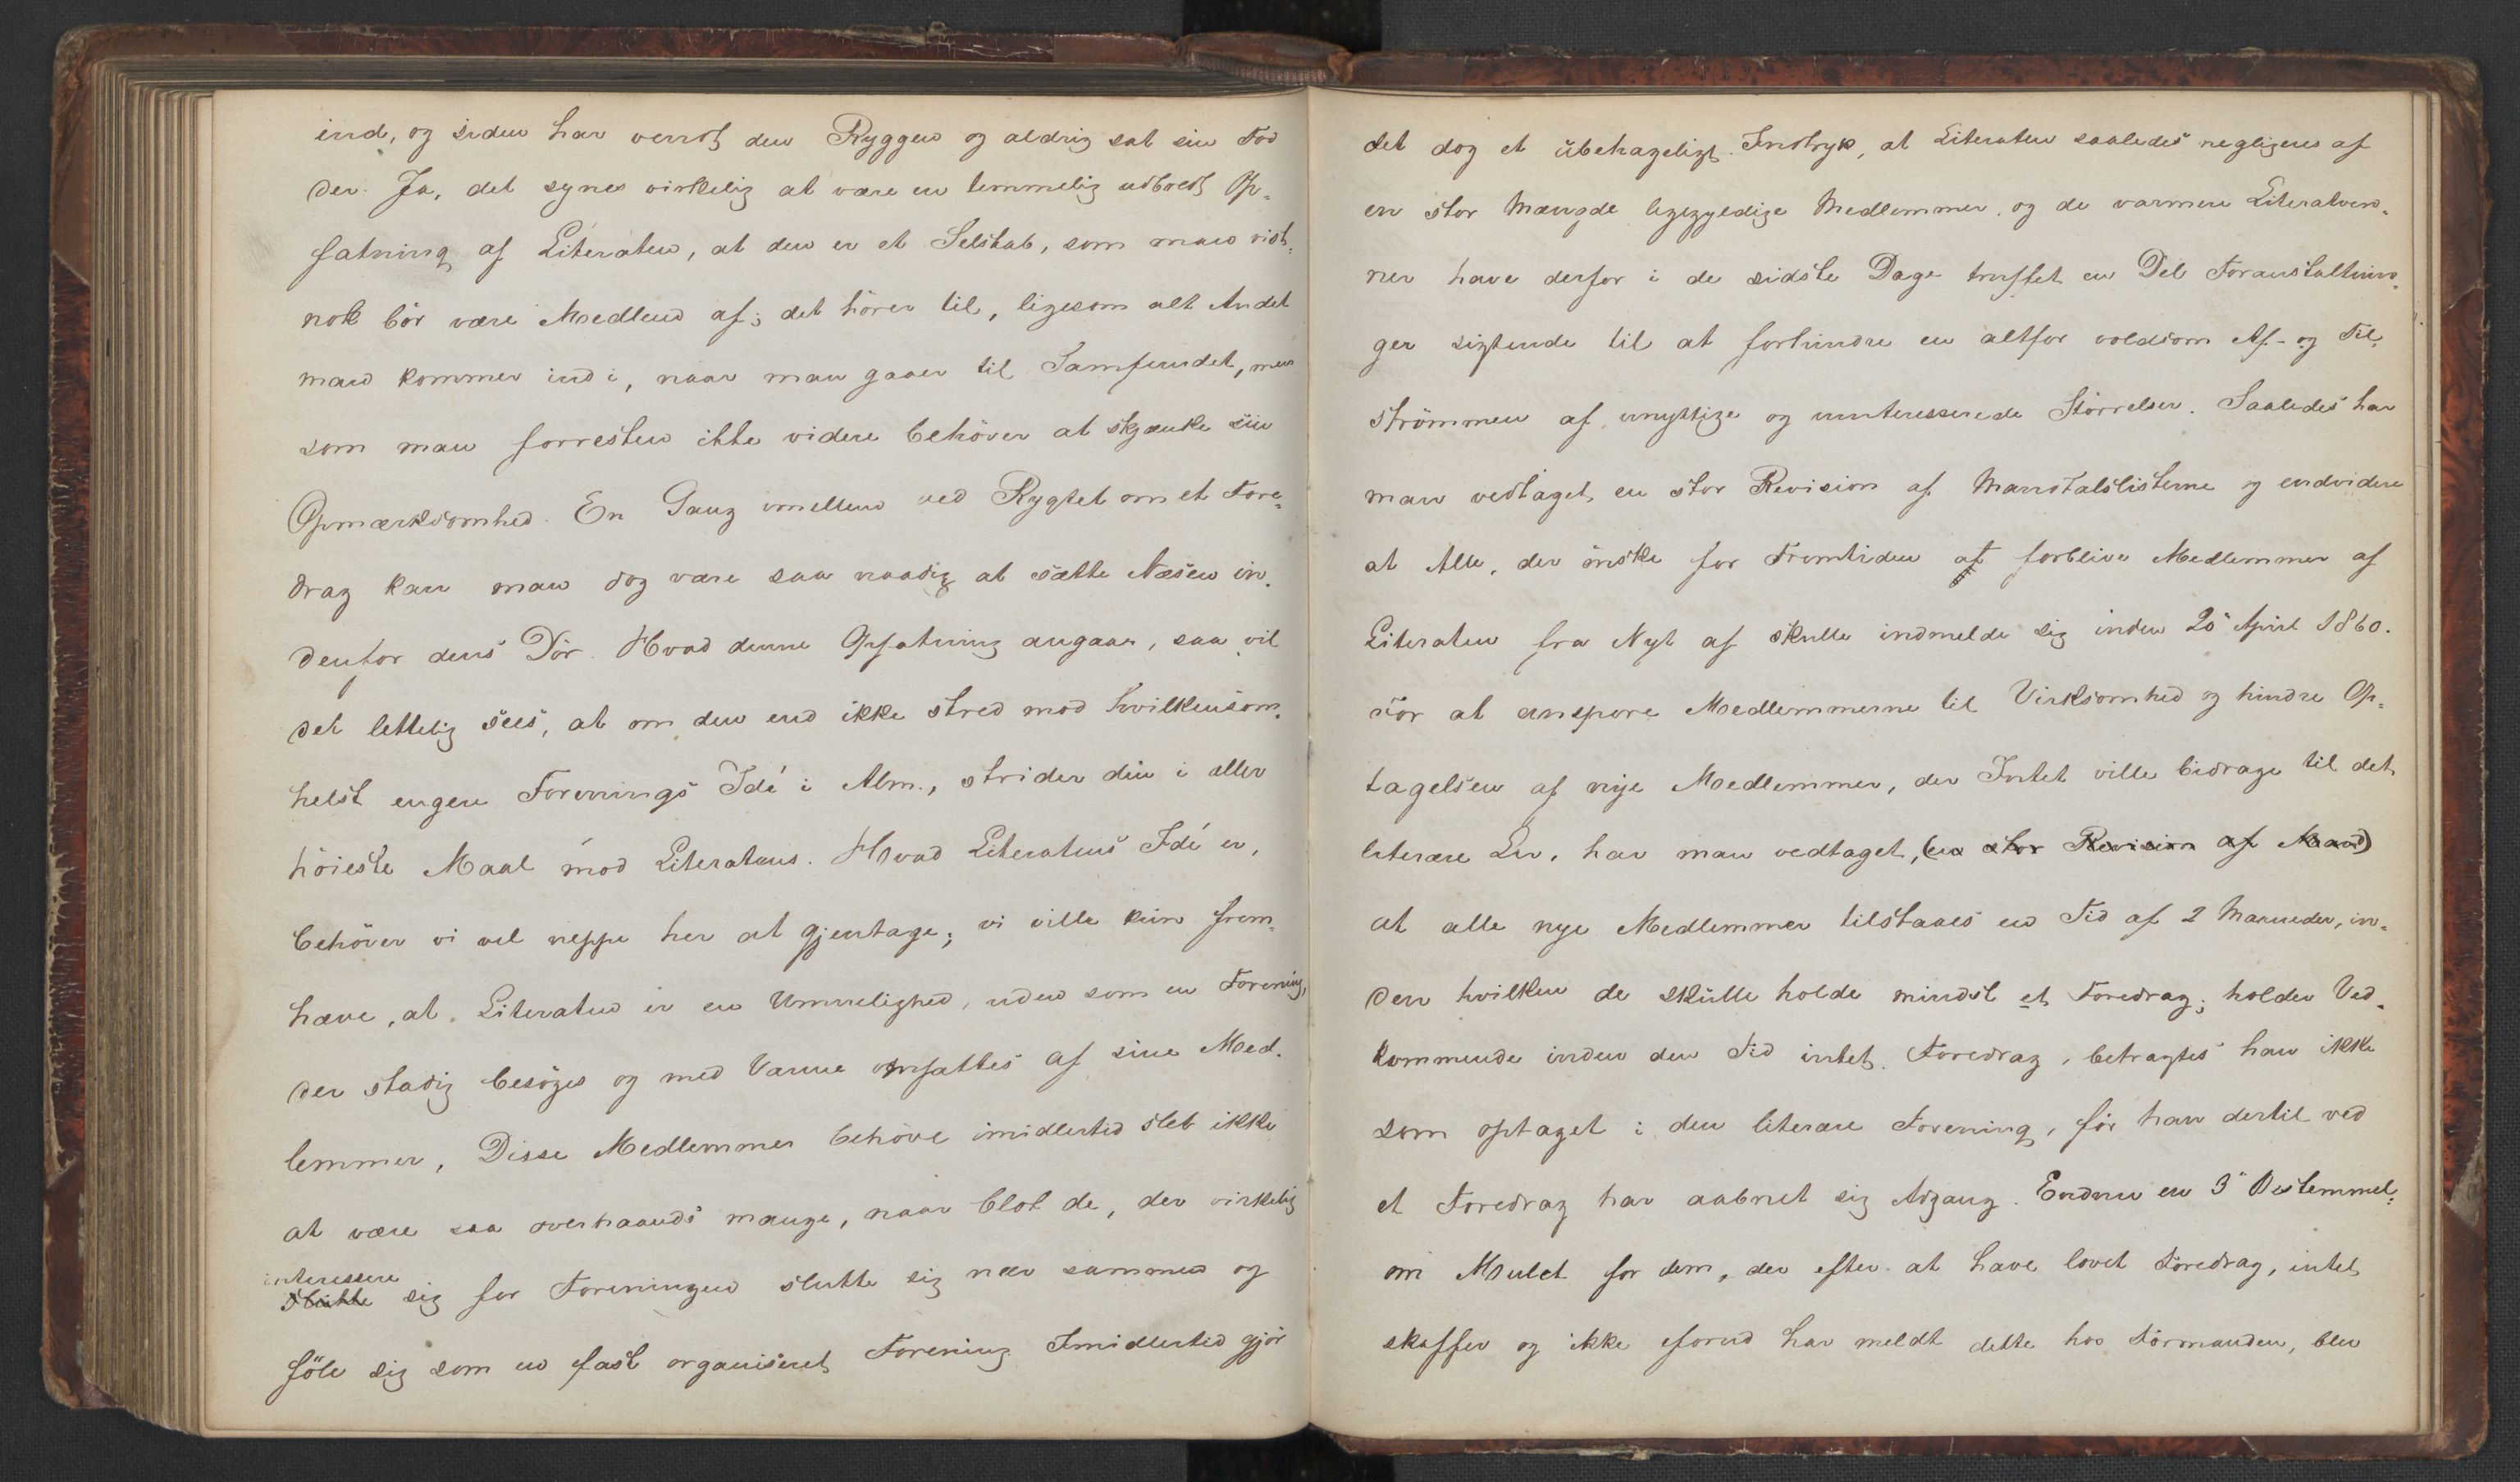 ind, og siden har vendt den Ryggen og aldrig sat sin Fod
der. Ja, det synes virkelig at være en temmelig udbredt Op-
fatning af Literaten, at den er et Selskab, som man vist-
nok bör være Medlem af; det hörer til, ligesom alt Andet
man kommer ind i, naar man gaaer til Samfundet, men
som man forresten ikke videre behöver at skjænke sin
Opmærksomhed. En Gang imellem ved Rygtet om et Fore-
drag kan man dog være saa naadig at sætte Næsen in-
denfor dens Dör. Hvad denne Opfatning angaar, saa vil
det lettelig sees, at om den end ikke stred mod hvilkensom-
helst engere Forenings Idé i Alm., strider den i aller
höieste Maal mod Literatens. Hvad Literatens Idé er,
behöver vi vel neppe her at gjentage; vi ville kun frem-
hæve, at Literaten er en Umuelighed, uden som en Forening,
der stadig besöges og med Varme omfattes af sine Med-
lemmer, Disse Medlemmer behöve imidlertid slet ikke
at være saa overhaands mange, naar blot de, der virkelig
interessere
slutte sig for Foreningen slutte sig nær sammen og
föle sig som en fast organiseret Forening. Imidlertid gjör
det dog et übehageligt Indtryk, at Literaten saaledes negligeres af
en stor Mængde ligegyldige Medlemmer, og de varmere Literatven-
ner have derfor i de sidste Dage truffet en Del Foranstaltnin-
ger sigtende til at forhindre en altfor voldsom Af- og Til-
strömmen af unyttige og uinteresserede Störrelser. Saaledes har
man vedtaget en stor Revision af Mandtalslisterne og endvidere
at Alle, der önske for Fremtiden at forblive Medlemmer af
Literaten fra Nyt af skulle indmelde sig inden 25 April 1860.
For at anspore Medlemmerne til Virksomhed og hindre Op-
tagelsen af nye Medlemmer, der Intet ville bidrage til det
literære Liv, har man vedtaget, (en stor Revision af Mand)
at alle nye Medlemmer tilstaaes en Tid af 2 Maaneder, in-
den hvilken de skulle holde mindst et Foredrag; holder Ved-
kommende inden den Tid intet Foredrag, betragtes han ikke
som optaget i den literære Forening, för han dertil ved
et Foredrag har aabnet sig Adgang. Endnu en 3 Bestemmel-
om Mulct for dem, der efter at have lovet Foredrag, intet
skaffer og ikke forud har meldt dette hos Formanden, blev